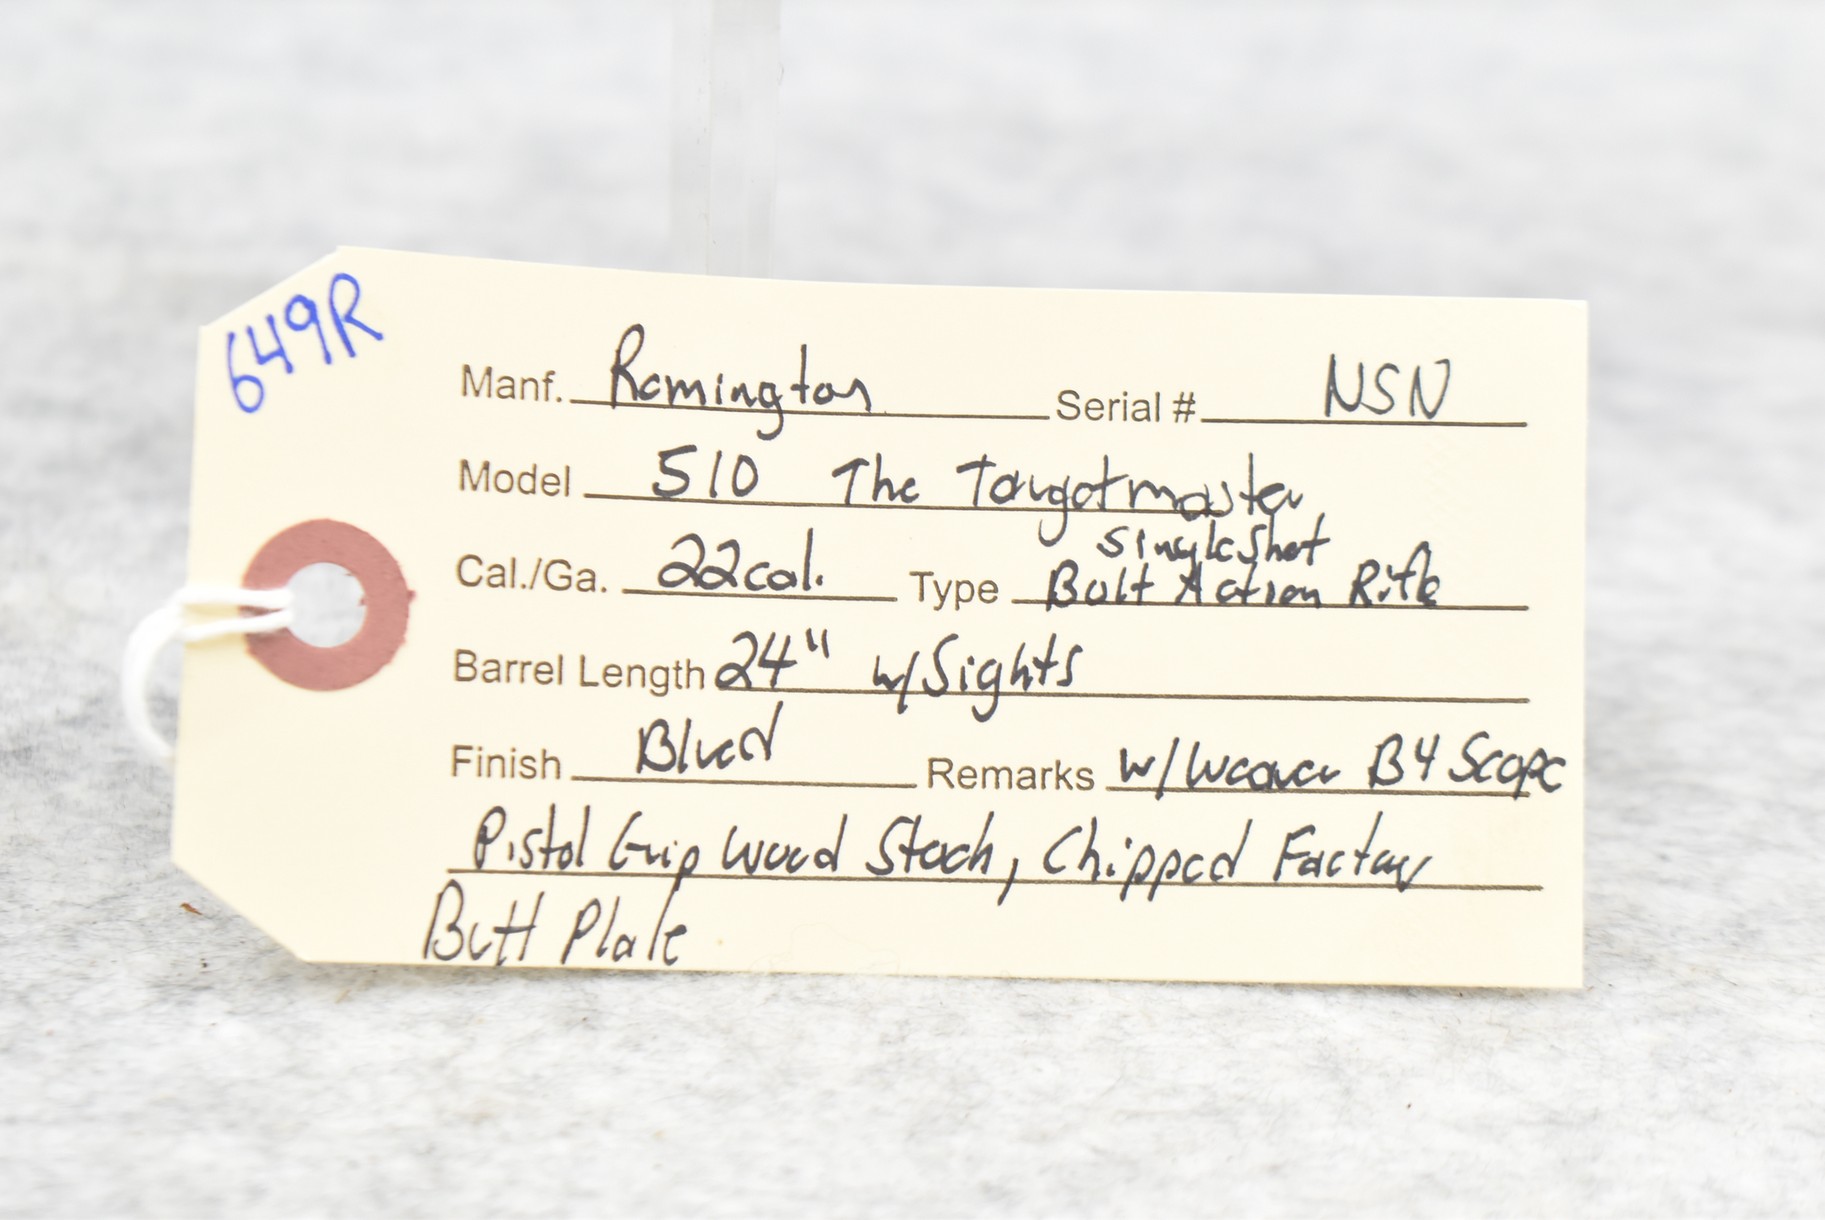 649R
Manf. Remington Serial # NSN
Model 510 The Targetmaster
Single Shot
Cal./Ga. 22cal. Type Bolt Action Rifle
Barrel Length 24" w/Sights
Finish Blued Remarks w/Weaver B4 Scope
Pistol Grip Wood Stock, Chipped Factory
Butt Plate